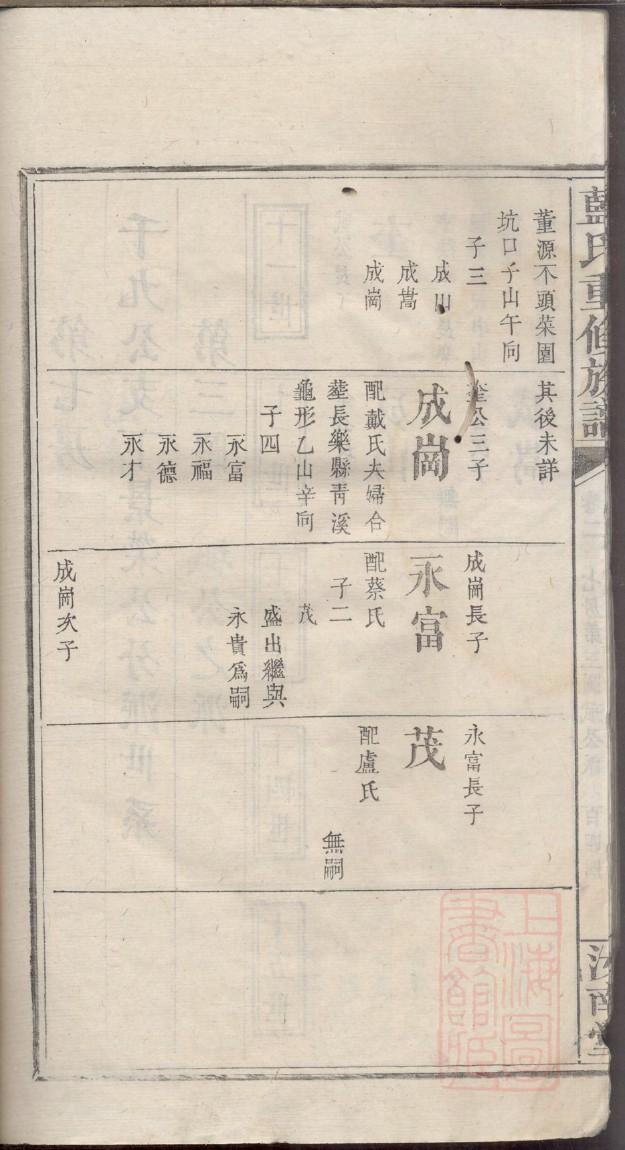 藍氏重修族譜
汝南堂
董源不頭菜園
坑口子山午向
子三
成山
成嵩
成崗
其後未詳
公三子
成崗
配戴氏夫婦合
塟長樂縣靑溪
龜形乙山辛向
子四
永富
永福
永德
永才
成崗長子
永富
配蔡氏
子二
茂
盛出繼與
永貴爲嗣
成崗次子
永富長子
茂
配盧氏
無嗣
上海圖
書館藏